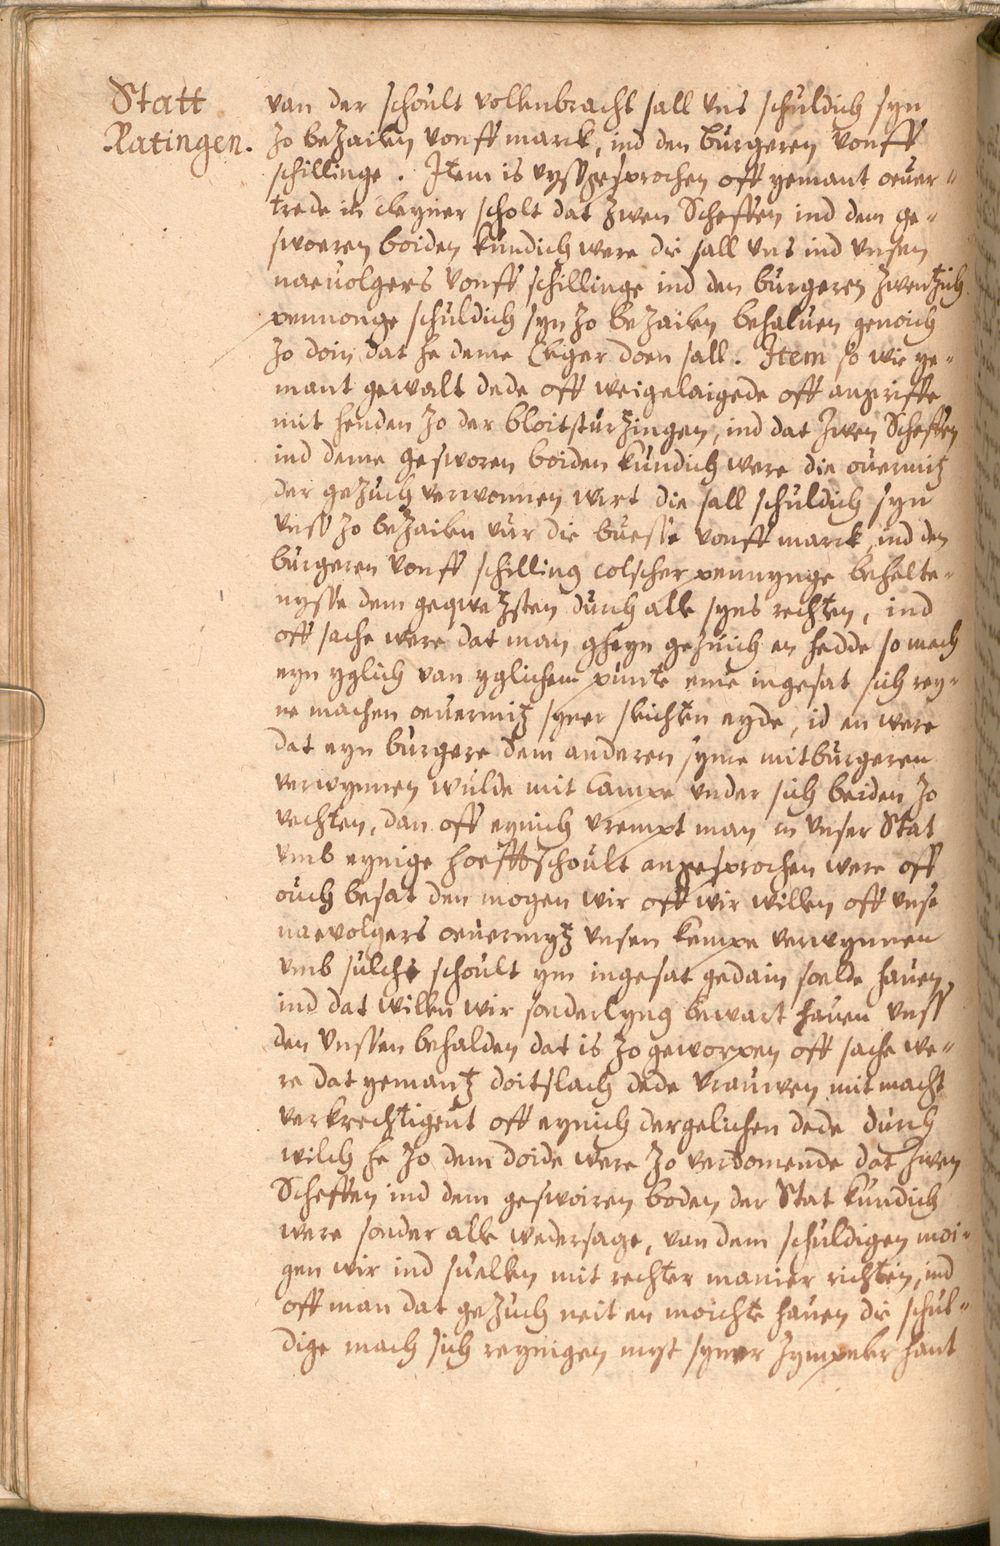 Statt
Ratingen.
van der schoult vollenbracht sall vns schuldich syn
zo bezailen vonff marck, ind den bürgeren vonff
schillinge. Item is vyssgesprochen off yemant oeuer-
trede in cleyner scholt dat zwen Scheffen ind dem ge-
sworen boiden kündich were die sall vns ind vnsen
naeuolgers vonff schillinge ind den bürgeren zwentzich
pennonge schuldich syn zo bezailen behaluen genoich
zo doin dat he deme Cleger doen sall. Item so wie ye-
mant gewalt dede off weigelaigede off angriffe
mit henden zo der bloitstürzingen, ind dat zwen Scheffen
ind deme gesworen boiden kundich were die ouermitz
der gezüch verwonnen wirt die sall schüldich syn
vnss zo bezailen vur die büesse vonff marck, ind den
bürgeren vonff schilling colscher pennynge behelte-
nysse dem gequetzsten dürch alle syns rechten, ind
off sache were dat man gheyn gezuich en hedde so mach
eyn yglich van yglichem punte eme ingesat sich rey-
ne machen oeuermitz syner slichten eyde, id en were
dat eyn burgere dem anderen syme mitbürgeren
verwynnen wulde mit campe vnder sich beiden zo
vechten, dan off eynich vrempt man in vnser Stat
vmb eynige hoefftschoult angesprochen were off
ouch besat den mogen wir off wir willen off vnse
naevolgers oeuermytz vnsen kempe verwynnen
vmb sulche schoult ym ingesat gedain soelde hauen,
ind dat willen wir sonderlyng bewart hauen vnss
den vnssen behalden dat is zo geworpen off sache we-
re dat yemantz doitslach dede vrauwen mit macht
verkrechtigent off eynich dergelichen dede dürch
wilch he zo dem doide were zo verdomende dat zwen
Scheffen ind dem geswoiren boden der Stat kündich
were sonder alle wedersage, van dem schuldigen moi-
gen wir ind suellen mit rechter manier richten, ind
off man dat gezüch neit en moichte hauen die schul-
dige mach sich reynigen myt syner zympeler hant